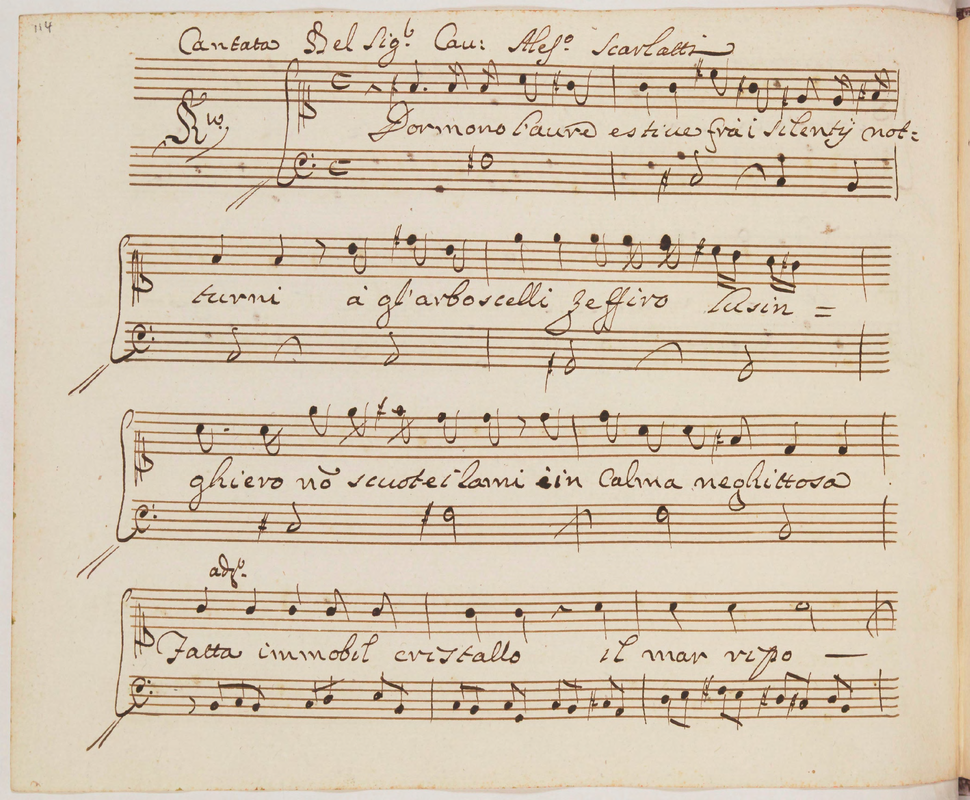 114
Cantata Del Sig.r Cau: Ales.o Scarlatti
R.vo
Dormono l'aure estiue frà i silentij not=
turni à gl'arboscelli Zeffiro lusin=
ghiero nõ scuote i lami è in Calma neghittosa
ad.o
Fatta immobil cristallo il mar ripo —